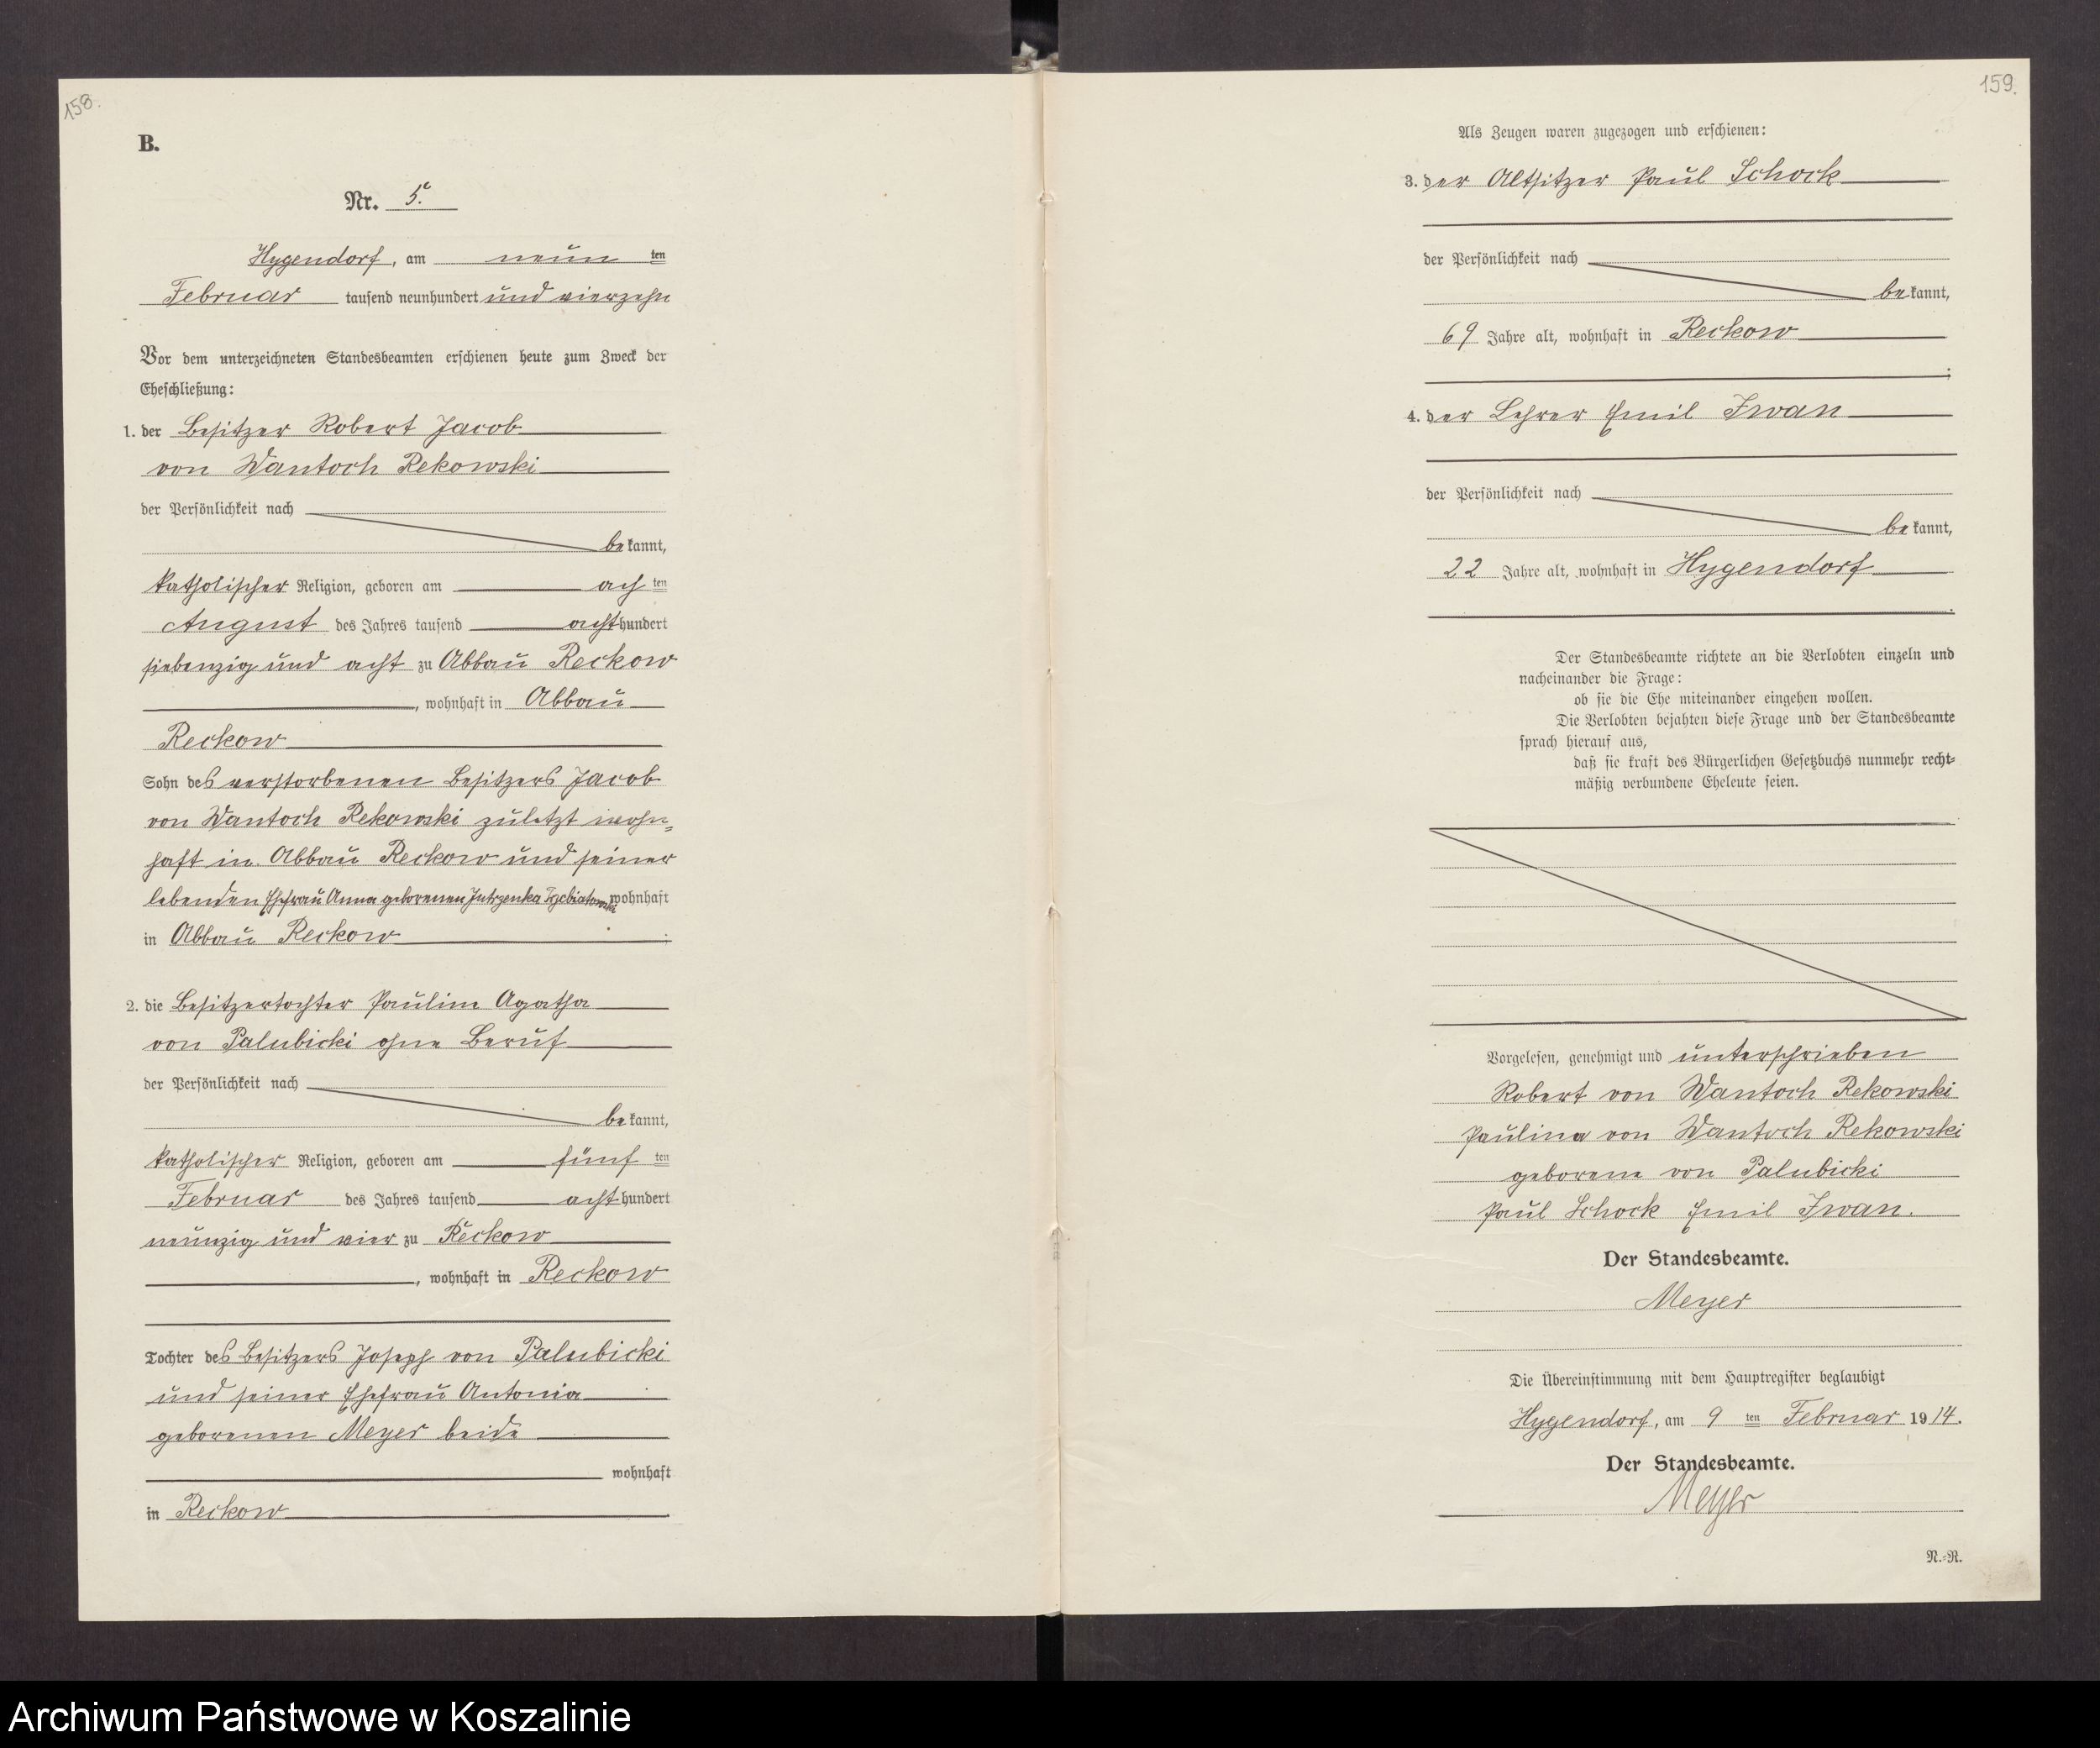 158.
B.
Nr. 5.
Hygendorf, am neun ten
Februar tausend neunhundert und vierzehn
Vor dem unterzeichneten Standesbeamten erschienen heute zum Zweck der
Eheschließung:
1. der Besitzer Robert Jacob
von Wantoch Rekowski
der Persönlichkeit nach
be kannt,
katholischer Religion, geboren am ach ten
August des Jahres tausend acht hundert
siebenzig und acht zu Abbau Reckow
, wohnhaft in Abbau
Reckow
Sohn des verstorbenen Besitzers Jacob
von Wantoch Rekowski zuletzt wohn=
haft in Abbau Reckow und seiner
lebenden Ehefrau Anna geborenen Jutrzenka Trzebiatowski wohnhaft
in Abbau Reckow.
2. die Besitzertochter Pauline Agatha
von Palubicki ohne Beruf
der Persönlichkeit nach
be kannt,
katholischer Religion, geboren am fünf ten
Februar des Jahres tausend acht hundert
neunzig und vier zu Reckow
, wohnhaft in Reckow
Tochter des Besitzers Joseph von Palubicki
und seiner Ehefrau Antonia
geborenen Meyer beide
wohnhaft
in Reckow.
159.
Als Zeugen waren zugezogen und erschienen:
3. der Altsitzer Paul Schock
der Persönlichkeit nach
be kannt,
69 Jahre alt, wohnhaft in Reckow
;
4. der Lehrer Emil Iwan
der Persönlichkeit nach
be kannt,
22 Jahre alt, wohnhaft in Hygendorf
.
Der Standesbeamte richtete an die Verlobten einzeln und
nacheinander die Frage:
ob sie die Ehe miteinander eingehen wollen.
Die Verlobten bejahten diese Frage und der Standesbeamte
sprach hierauf aus,
daß sie kraft des Bürgerlichen Gesetzbuchs nunmehr recht=
mäßig verbundene Eheleute seien.
Vorgelesen, genehmigt und unterschrieben
Robert von Wantoch Rekowski
Paulina von Wantoch Rekowski
geborene von Palubicki
Paul Schock Emil Iwan.
Der Standesbeamte.
Meyer
Die Übereinstimmung mit dem Hauptregister beglaubigt
Hygendorf, am 9 ten Februar 1914.
Der Standesbeamte.
Meyer
N.=R.
Archiwum Państwowe w Koszalinie